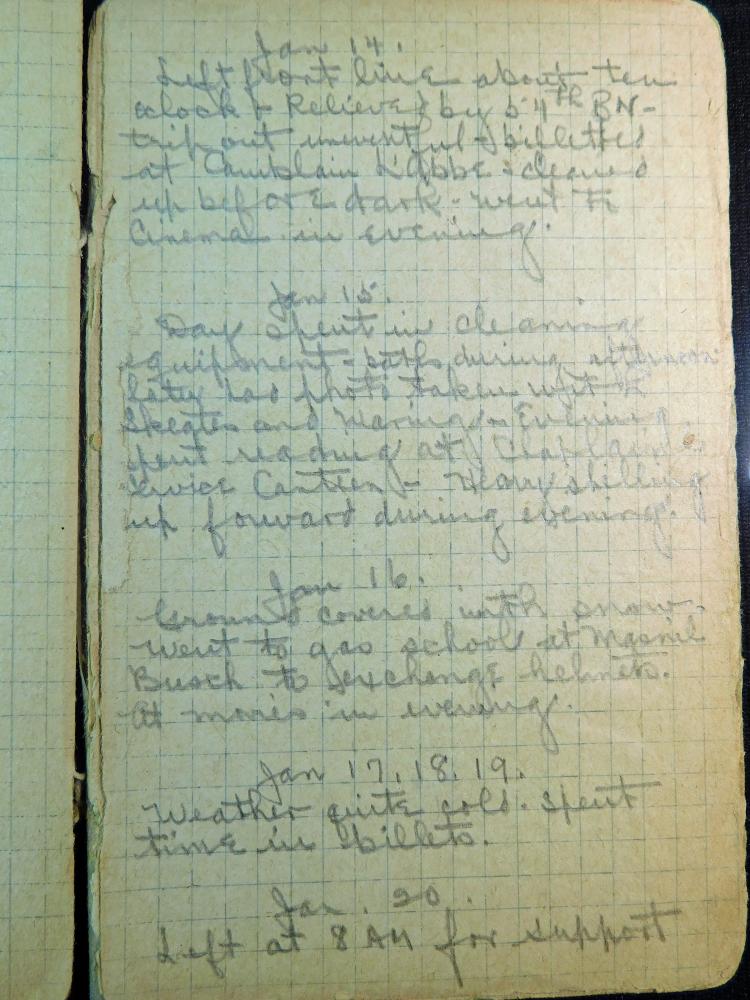 Jan 14.
Left front line about ten
oclock & Relieved by 54th BN-
trip out uneventful - billetted
at Camblain L'Abbe - cleaned
up before dark - went to
Cinema in evening.
Jan 15.
Day spent in cleaning
equipment - baths during afternoon
had photo taken with
Skeates and Waring - Evening
spent reading at Chaplain's
Service Canteen - Heavy shelling
up forward during evening.
Jan 16.
Ground covered with snow.
Went to gas school at Mesnil
Busch to exchange helmets.
At movies in evening.
Jan 17. 18. 19.
Weather quite cold. Spent
time in billets.
Jan. 20.
Left at 8 AM for support